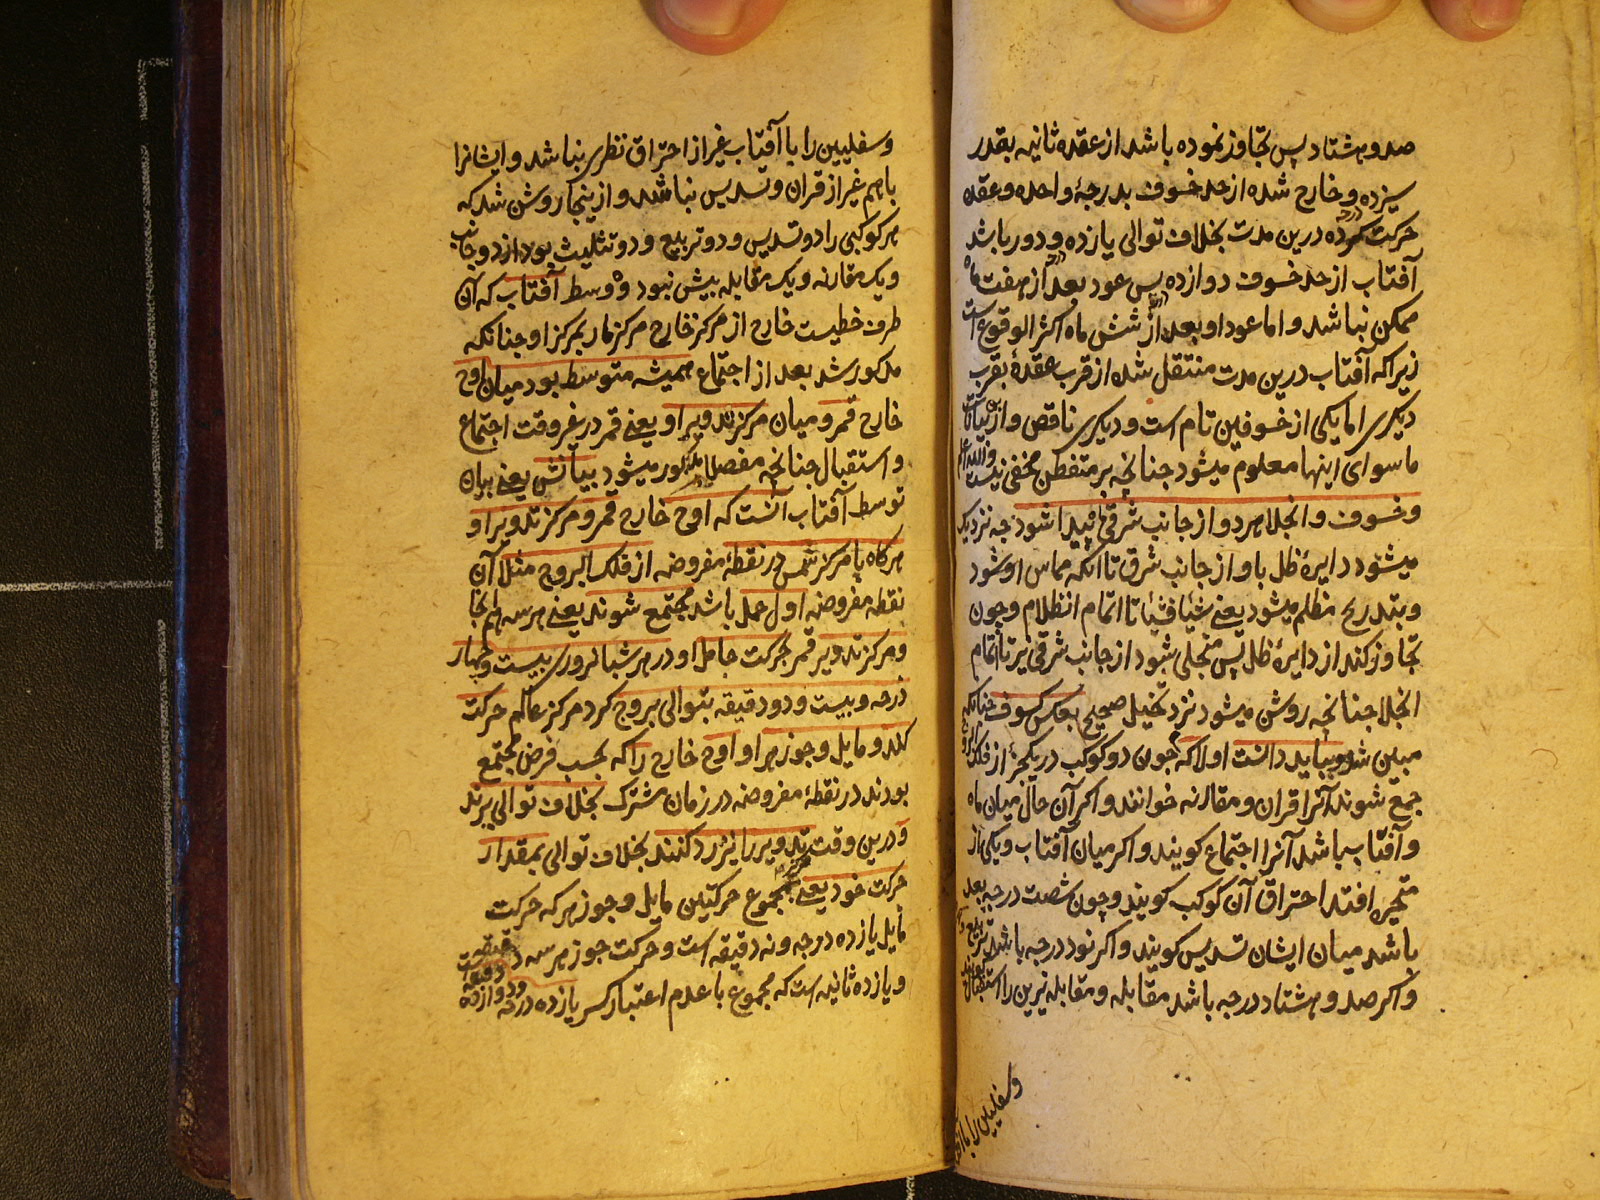 صد و هشتاد پس تجاوز نموده باشد از عقده ثانیه بقدر
سیزده و خارج شده از حد خسوف بدرجهٔ واحده و عقده
حرکت کرده درین مدت بخلاف توالی یازده و دور باشد
آفتاب از حد خسوف دوازده پس عود بعد از هفت ماه
ممکن نباشد و اما عود او بعد از شش ماه اکثر الوقوع است
زیرا که آفتاب درین مدت منتقل شده از قرب عقدهٔ بقرب
دیکری اما یکی از خسوفین تام است و دیکری ناقص و از بیانات
ماسوای اینها معلوم میشود جنانچه بر متفطن مخفی نیست والله اعلم
و خسوف و انجلا هر دو از جانب شرقی پیدا شود جه نزدیک
میشود دایرهٔ ظل باو از جانب شرق تا آنکه مماس او شود
و بتدریج مظلم میشود یعنی شیئا فشیئا تا اتمام انظلام و چون
تجاوز کند از دایرهٔ ظل پس منجلی شود از جانب شرقی نیز تا اتمام
انجلا جنانچه روشن میشود نزد تخیل صحیح بعکس کسوف جنانکه
مبین شد و بباید دانست اولا که جون دو کوکب در یکجزٔ از فلک البروج
جمع شوند آنرا قران و مقارنه خوانند و اکر آن حال میان ماه
و آفتاب باشد آنرا اجتماع کویند و اکر میان آفتاب و یکی از
متحیره افتد احتراق آن کوکب کویند و چون شصت درجه بعد
باشد میان ایشان تسدیس کویند و اکر نود درجه باشد تربیع
و اکر صد و هشتاد درجه باشد مقابله و مقابله نیرین را استقبال
وسفلیین را با آفتاب
وسفلیین را با آفتاب غیر از احتراق نظری نباشد و ایشانرا
باهم غیر از قران و تسدیس نباشد و ازینجا روشن شد که
هر کوکبی را دو تسدیس و دو تربیع و دو تثلیث بود از دو جانب
و یک مقارنه و یک مقابله بیش نبود و وسط آفتاب که آن
طرف خطیست خارج از مرکز خارج مرکز مار بمرکز او جنانکه
مذکور شد بعد از اجتماع همیشه متوسط بود میان اوج
خارج قمر و میان مرکز تدویر او یعنی قمر در غیر وقت اجتماع
و استقبال جنانچه مفصلا مذکور میشود بیانش یعنی بیان
توسط آفتاب آنست که اوج خارج قمر و مرکز تدویر او
هرکاه با مرکز شمس در نقطهٔ مفروضه از فلک البروج مثلا آن
نقطه مفروضه اول حمل باشد مجتمع شوند یعنی هر سه آنجا
و مرکز تدویر قمر بحرکت حامل او در هر شبانروزی بیست و چهار
درجه و بیست و دو دقیقه بتوالی بروج کرد مرکز عالم حرکت
کند و مایل و جوزهر او اوج خارج را که بحسب فرض مجتمع
بودند در نقطهٔ مفروضه در زمان مشترک بخلاف توالی برند
و درین وقت تدویر را نیز رد کنند بخلاف توالی بمقدار
حرکت خود یعنی مجموع حرکتین مایل و جوزهر که حرکت
مایل یازده درجه و نه دقیقه است و حرکت جوزهر سه دقیقه
و یازده ثانیه است که مجموع با عدم اعتبار کسر یازده درجه و دوازده دقیقه